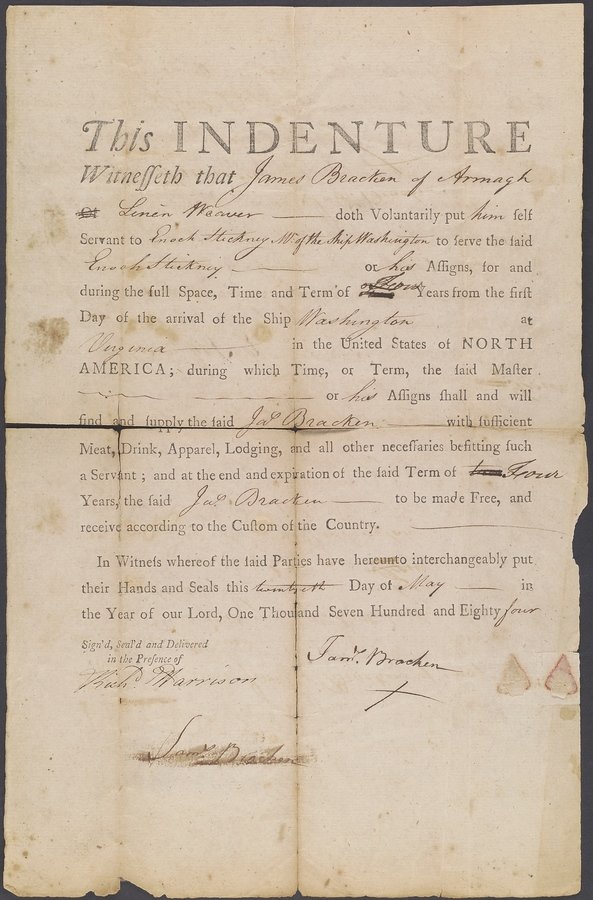 This INDENTURE
Witnesseth that James Bracken of Armagh
Linen Weaver doth Voluntarily put him self
Servant to Enoch Stickney Mr. of the Ship Washington to serve the said
Enoch Stickney or his Assigns, for and
during the full Space, Time and Term of Four Years from the first
Day of the arrival of the Ship Washington at
Virginia in the United States of NORTH
AMERICA; during which Time, or Term, the said Master
or his Assigns shall and will
find and supply the said Jas. Bracken with sufficient
Meat, Drink, Apparel, Lodging, and all other necessaries befitting such
a Servant; and at the end and expiration of the said Term of Four
Years, the said Jas. Bracken to be made Free, and
receive according to the Custom of the Country.
In Witness whereof the said Parties have hereunto interchangeably put
their Hands and Seals this twentieth Day of May in
the Year of our Lord, One Thousand Seven Hundred and Eighty four
Sign'd, Seal'd and Delivered
in the Presence of
Richd. Harrison
Jams. Bracken
Jams. Bracken